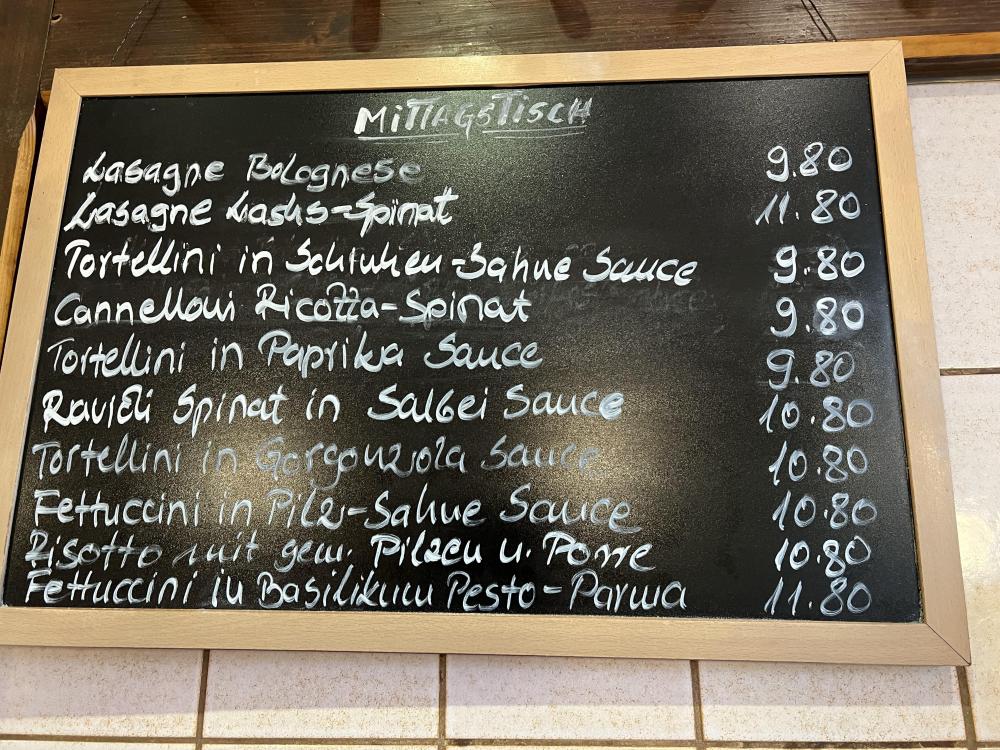 MITTAGSTISCH
Lasagne Bolognese 9.80
Lasagne Lachs-Spinat 11.80
Tortellini in Schinken-Sahne Sauce 9.80
Cannelloni Ricotta-Spinat 9.80
Tortellini in Paprika Sauce 9.80
Ravioli Spinat in Salbei Sauce 10.80
Tortellini in Gorgonzola Sauce 10.80
Fettuccini in Pilz-Sahne Sauce 10.80
Risotto mit gem. Pilzen u. Porre 10.80
Fettuccini in Basilikum Pesto-Parma 11.80